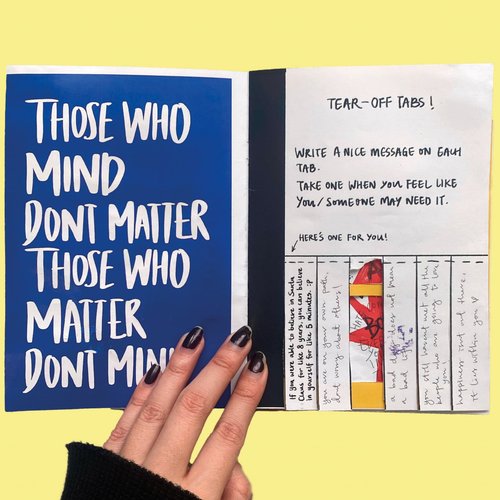 THOSE WHO
MIND
DONT MATTER
THOSE WHO
MATTER
DONT MIND
TEAR-OFF TABS!
WRITE A NICE MESSAGE ON EACH
TAB.
TAKE ONE WHEN YOU FEEL LIKE
YOU/SOMEONE MAY NEED IT.
HERE'S ONE FOR YOU!
If you were able to believe in Santa
Claus for like 8 years, you can believe
in yourself for like 5 minutes. :P
you are on your own path,
dont worry about others!
a bad day does not mean
a bad life
you still havent met all the
people who are going to love
you!
happiness isnt out there,
it lies within you